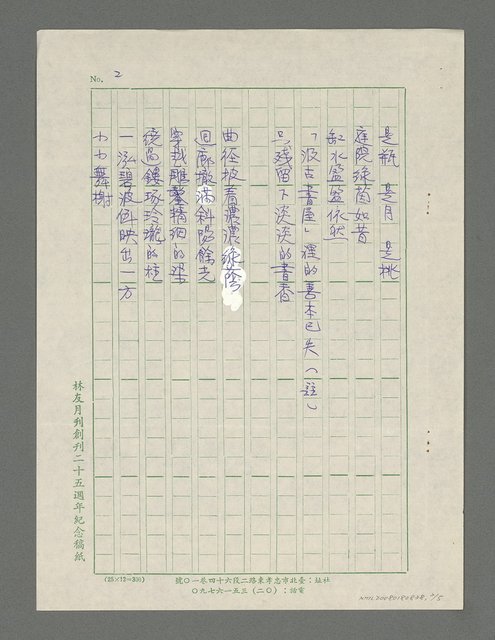 No. 2
是瓶 是月 是桃
庭院綠茵如昔
缸水盈盈依然
「汲古書屋」裡的善本已失(註)
只殘留下淡淡的書香
曲徑披著濃濃綠蔭
回廊撒滿斜陽餘光
穿越雕鑿精細的梁
繞過鏤琢玲瓏的柱
一泓碧波倒映出一方
小小舞榭
林友月刊創刊二十五週年紀念稿紙
(25×12=300)
社址:臺北市忠孝東路二段六十四巷一〇號
電話:(〇二)三五一六七九〇